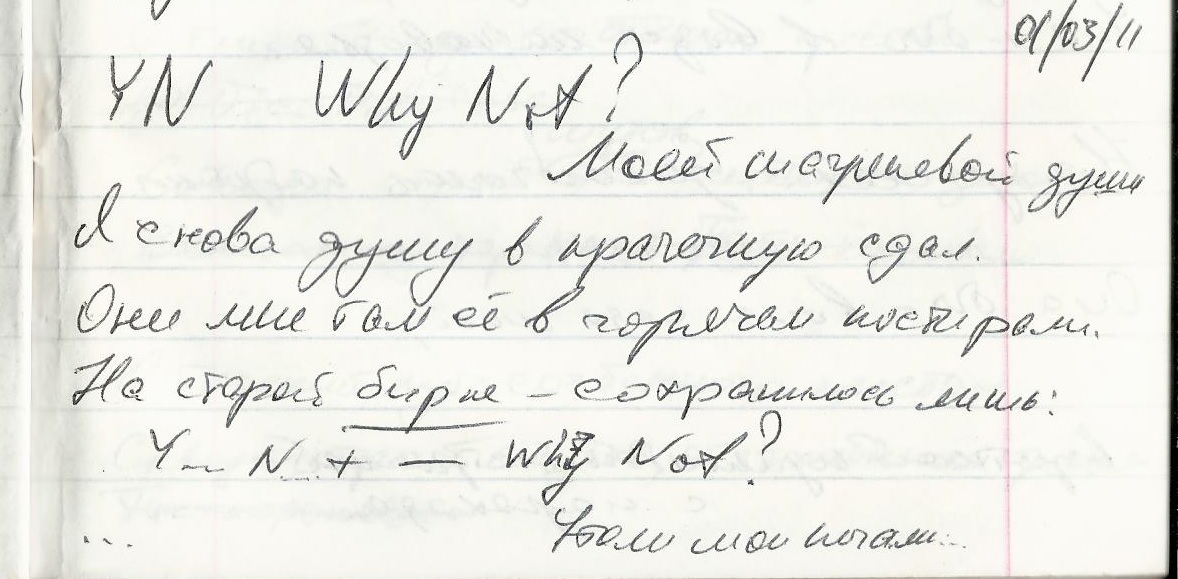 01/03/11
YN Why Not?
Моей шагреневой души
Я снова душу в прачечную сдал.
Они мне там её в горячем постирали.
На старой бирке – сохранилось лишь:
Y... N... + — Why Not?
... Утоли мои печали...